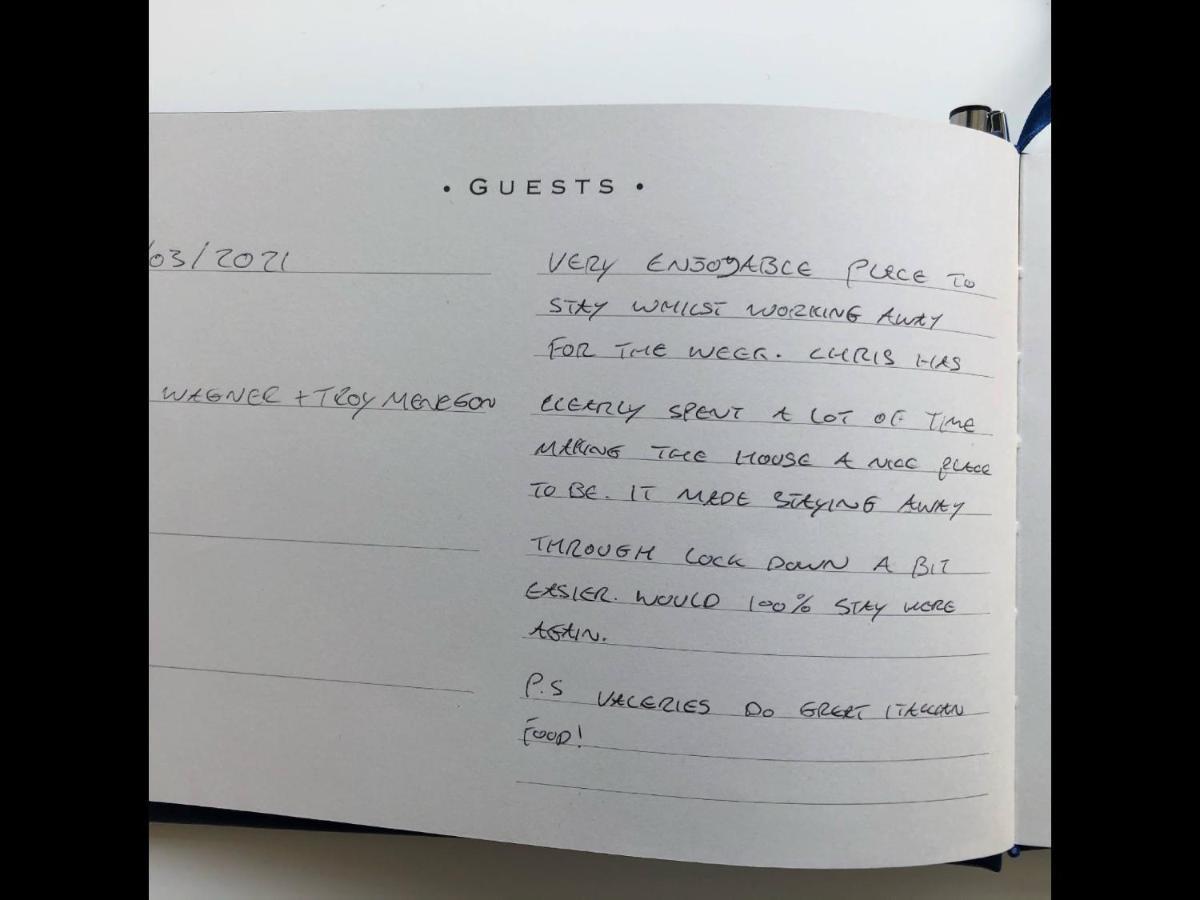 • GUESTS •
/03/2021
VERY ENJOYABLE PLACE TO
STAY WHILST WORKING AWAY
FOR THE WEEK. CHRIS HAS
WAGNER + TROY MENESON
CLEARLY SPENT A LOT OF TIME
MAKING THE HOUSE A NICE PLACE
TO BE. IT MADE STAYING AWAY
THROUGH LOCK DOWN A BIT
EASIER. WOULD 100% STAY HERE
AGAIN.
P.S VALERIES DO GREAT ITALIAN
FOOD!